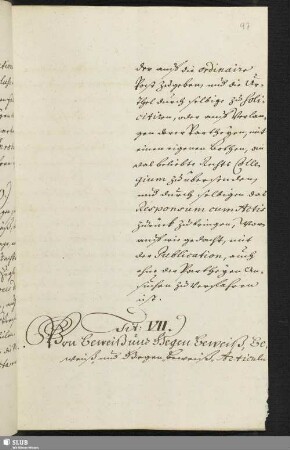 97
der auf die ordinaire
Post zu geben, und die Ur-
thel durch selbige zu soli-
citiren, oder auf Verlan-
gen derer Partheyen, mit
einen eigenen Bothen, an
das beliebte Rechts Colle-
gium zu übersenden,
und durch selbigen das
Responsum cum Actis
zurück zu bringen, wor-
auf wie gedacht, mit
der Publication, auch
ohne der Partheyen An-
suchen zu verfahren
ist.
Tit: VII.
Von Beweiß und Gegen Beweiß, Be-
weiß und Gegen Beweiß, Articuln
SLUB